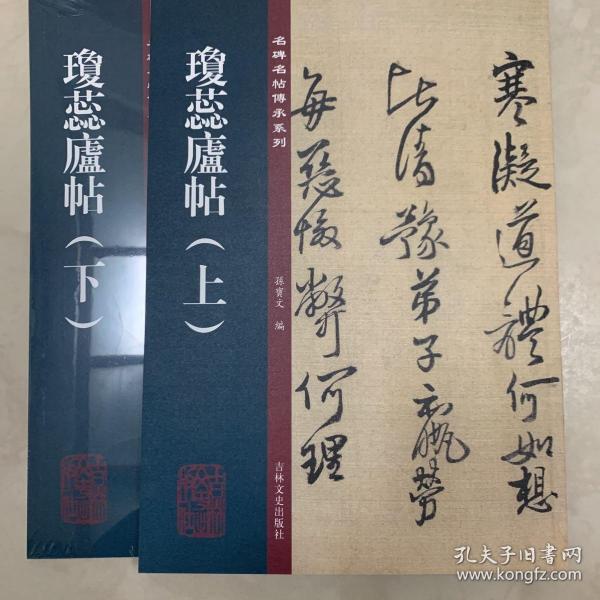 瓊蕊廬帖（下）
瓊蕊廬帖（上）
名碑名帖傳承系列
孫寶文 編
吉林文史出版社
寒凝道體何如想
比清豫弟子羸勞
每慈悔弊何理
孔夫子旧书网
www.kongfz.com